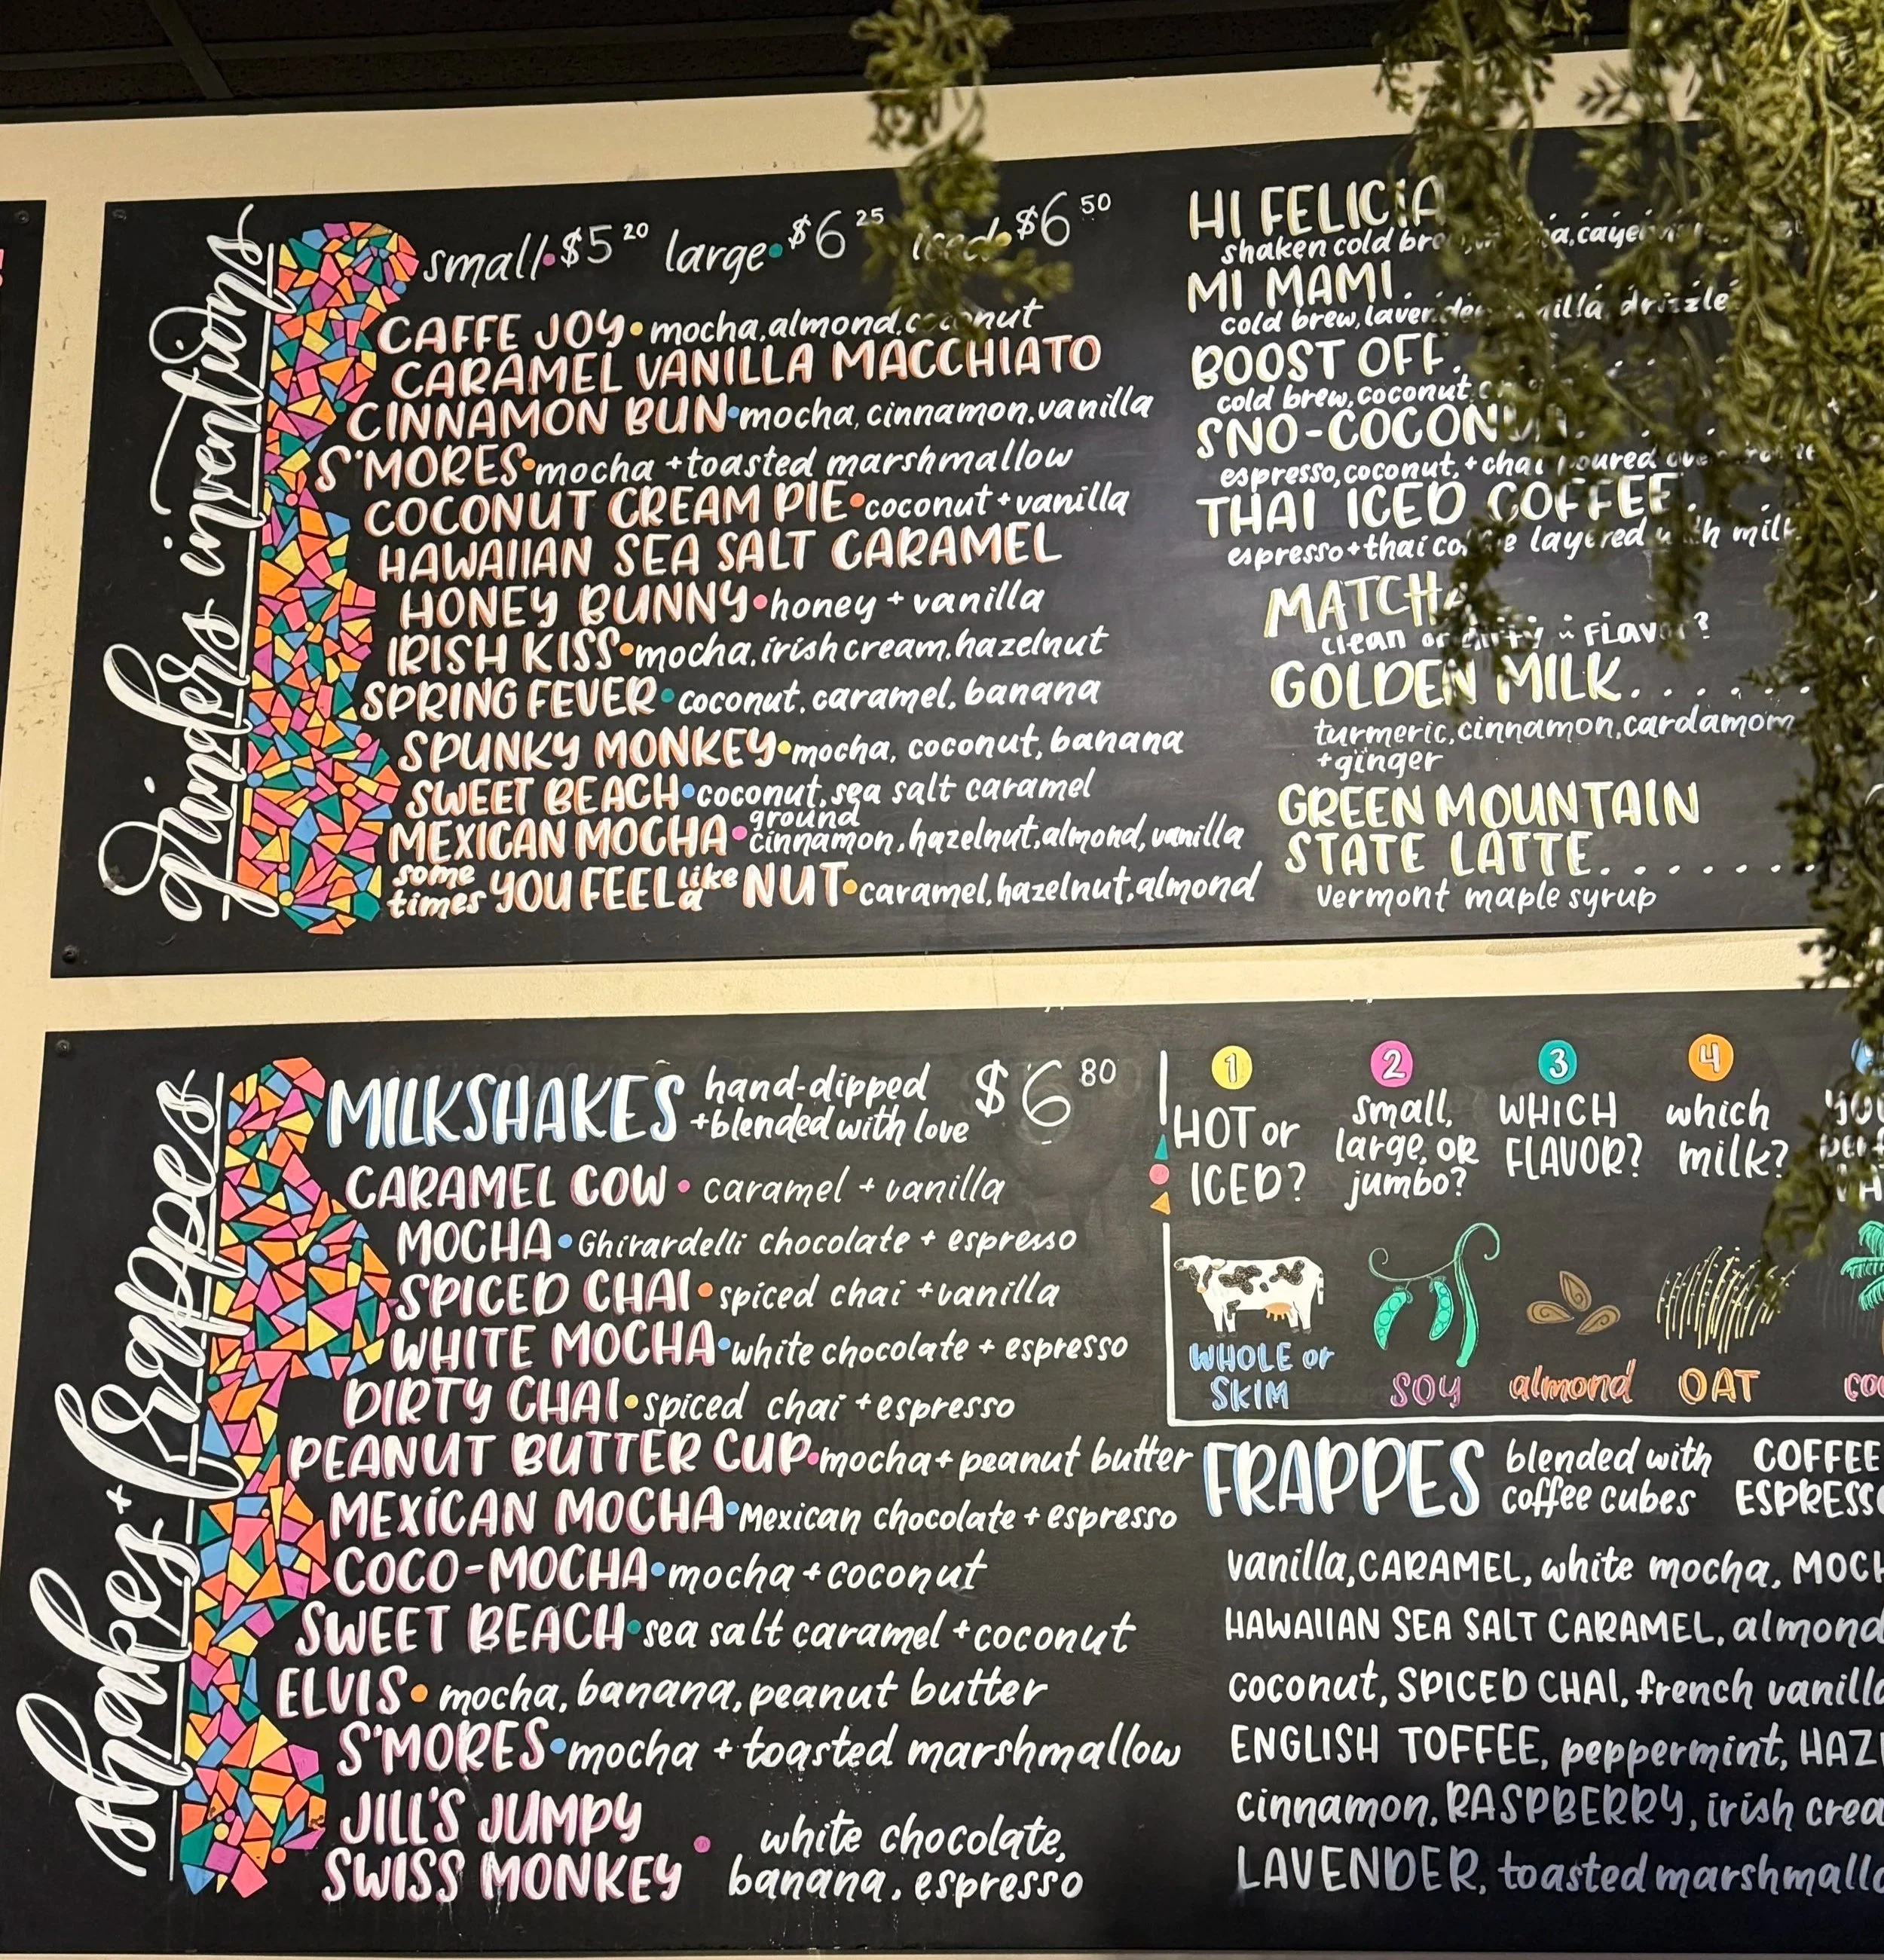 grinders inventions
small • $5 20 large • $6 25 iced • $6 50
CAFFE JOY • mocha, almond, coconut
CARAMEL VANILLA MACCHIATO
CINNAMON BUN • mocha, cinnamon, vanilla
S'MORES • mocha + toasted marshmallow
COCONUT CREAM PIE • coconut + vanilla
HAWAIIAN SEA SALT CARAMEL
HONEY BUNNY • honey + vanilla
IRISH KISS • mocha, irish cream, hazelnut
SPRING FEVER • coconut, caramel, banana
SPUNKY MONKEY • mocha, coconut, banana
SWEET BEACH • coconut, sea salt caramel
MEXICAN MOCHA • ground cinnamon, hazelnut, almond, vanilla
some times YOU FEEL like a NUT • caramel, hazelnut, almond
HI FELICIA
shaken cold
MI MAMI.
cold brew, lavender, vanilla drizzle
BOOST OFF.
cold brew, coconut
SNO-COCONUT
espresso, coconut, + chai poured over
THAI ICED COFFEE.
espresso + thai coffee layered with milk
MATCHA
clean or dirty ~ FLAVOR?
GOLDEN MILK.......
turmeric, cinnamon, cardamom
+ginger
GREEN MOUNTAIN
STATE LATTE.......
vermont maple syrup
shakes + frappes
MILKSHAKES hand-dipped +blended with love $6 80
CARAMEL COW • caramel + vanilla
MOCHA • Ghirardelli chocolate + espresso
SPICED CHAI • spiced chai + vanilla
WHITE MOCHA • white chocolate + espresso
DIRTY CHAI • spiced chai + espresso
PEANUT BUTTER CUP • mocha + peanut butter
MEXICAN MOCHA • Mexican chocolate + espresso
COCO-MOCHA • mocha + coconut
SWEET BEACH • sea salt caramel + coconut
ELVIS • mocha, banana, peanut butter
S'MORES • mocha + toasted marshmallow
JILL'S JUMPY
SWISS MONKEY • white chocolate,
banana, espresso
1 2 3 4
HOT or
ICED?
small,
large, OR
jumbo?
WHICH
FLAVOR?
which
milk?
WHOLE or
SKIM
SOY
almond
OAT
FRAPPES blended with
coffee cubes
COFFEE
ESPRESSO
vanilla, CARAMEL, white mocha,
HAWAIIAN SEA SALT CARAMEL, almond
coconut, SPICED CHAI, french vanilla
ENGLISH TOFFEE, peppermint,
cinnamon, RASPBERRY, irish
LAVENDER, toasted